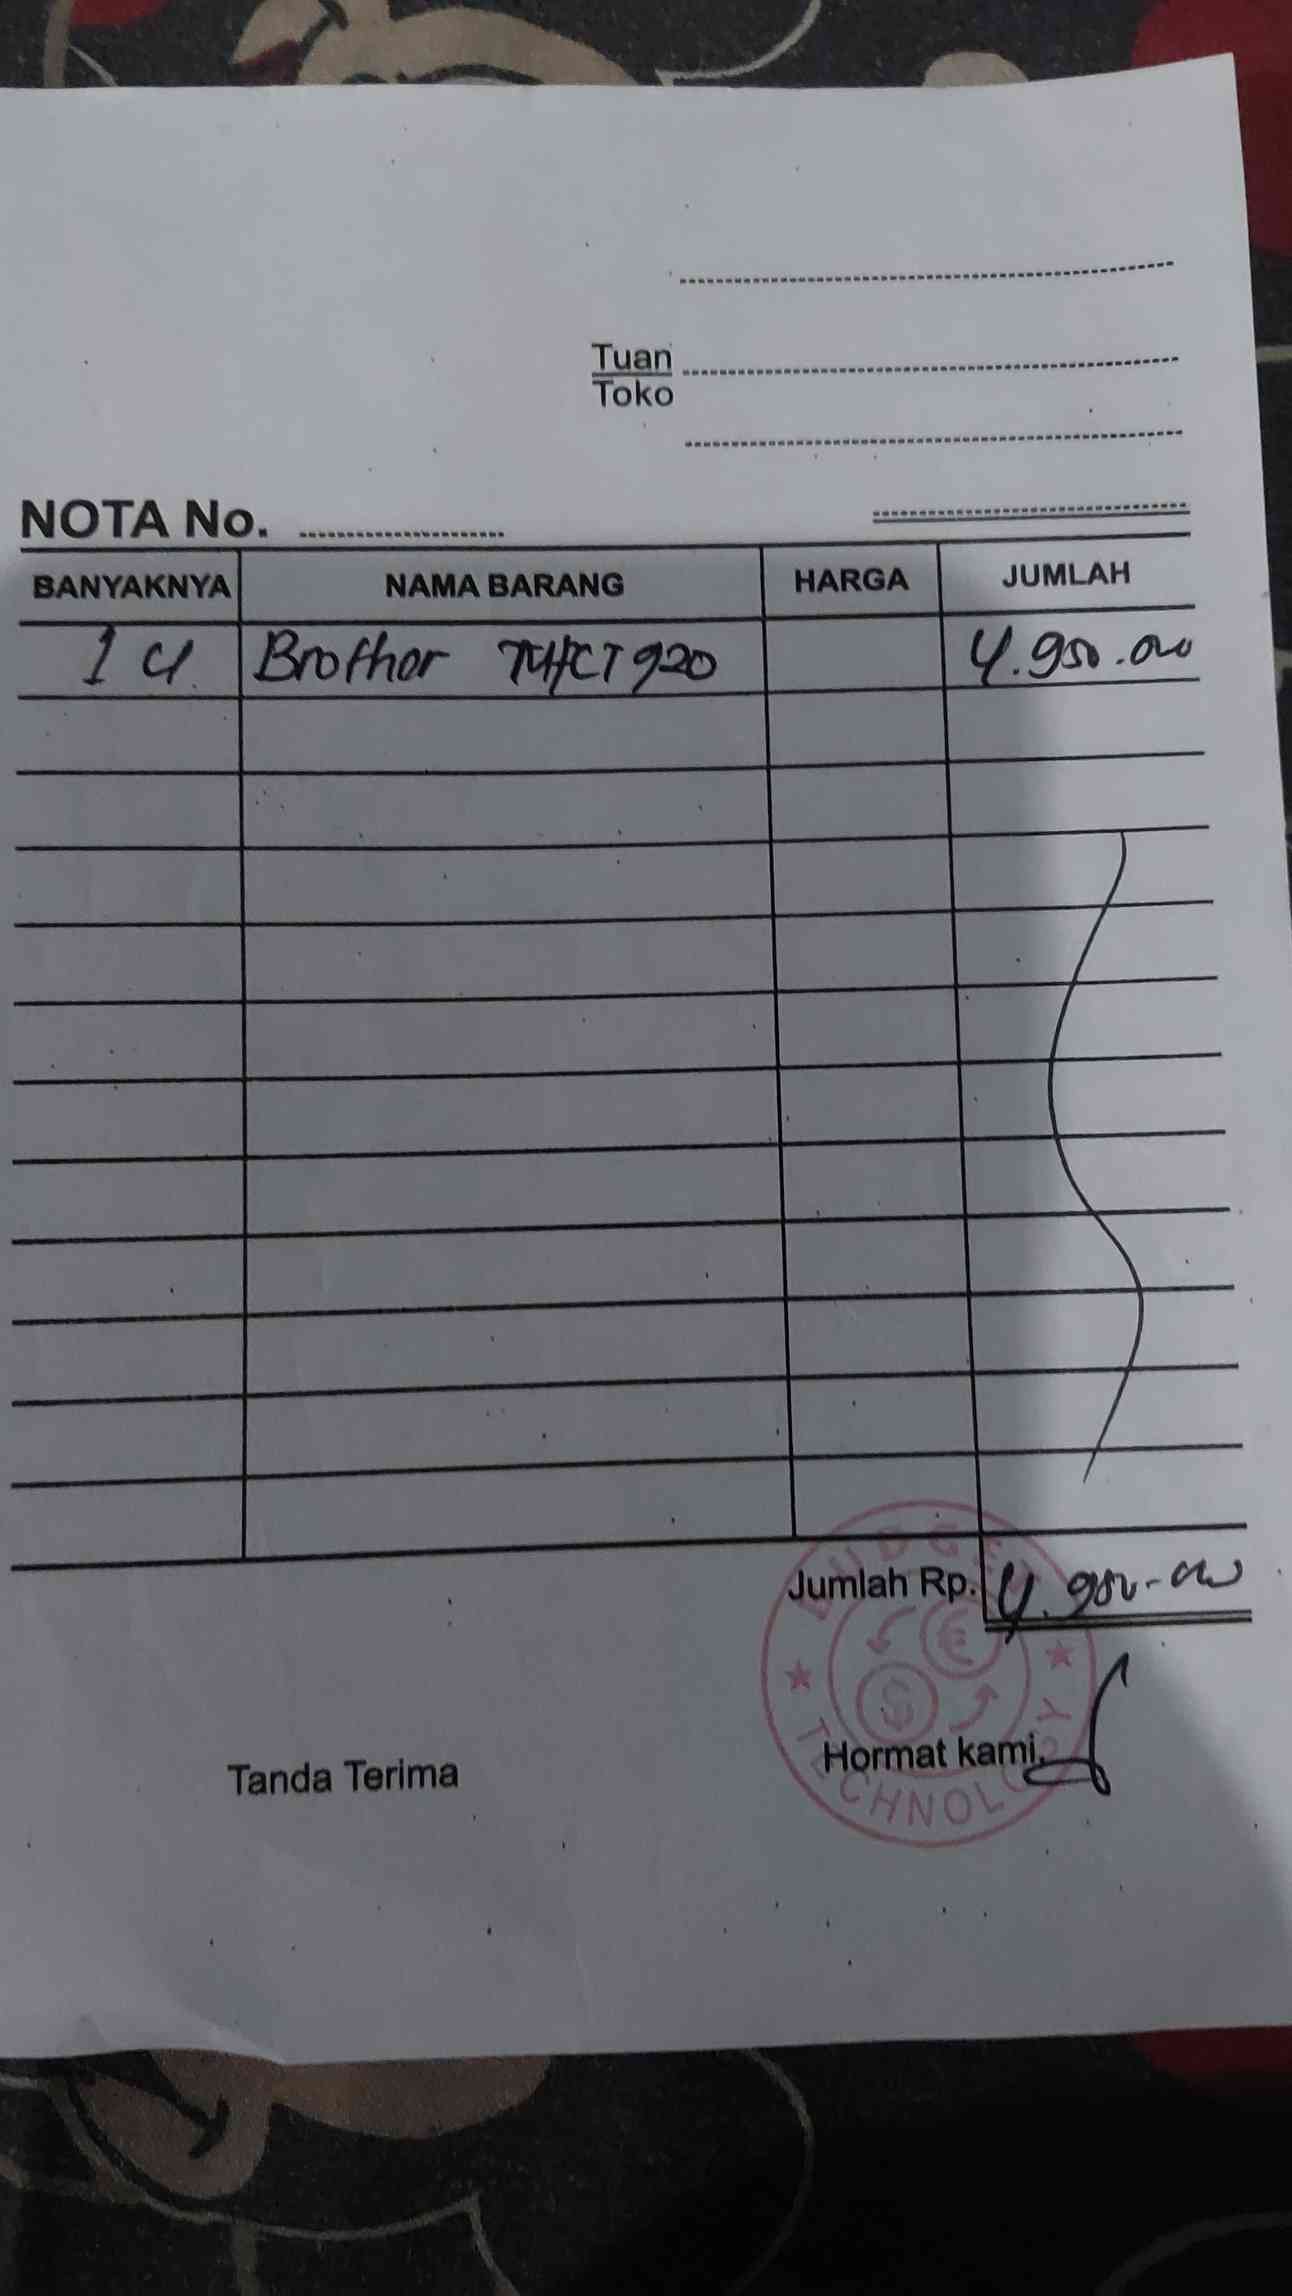 Tuan
Toko
NOTA No.
BANYAKNYA NAMA BARANG HARGA JUMLAH
1 U Brother CT920 4.950.000
BUDGET
Jumlah Rp. 4.950.000
Tanda Terima Hormat kami,
TECHNOLOGY